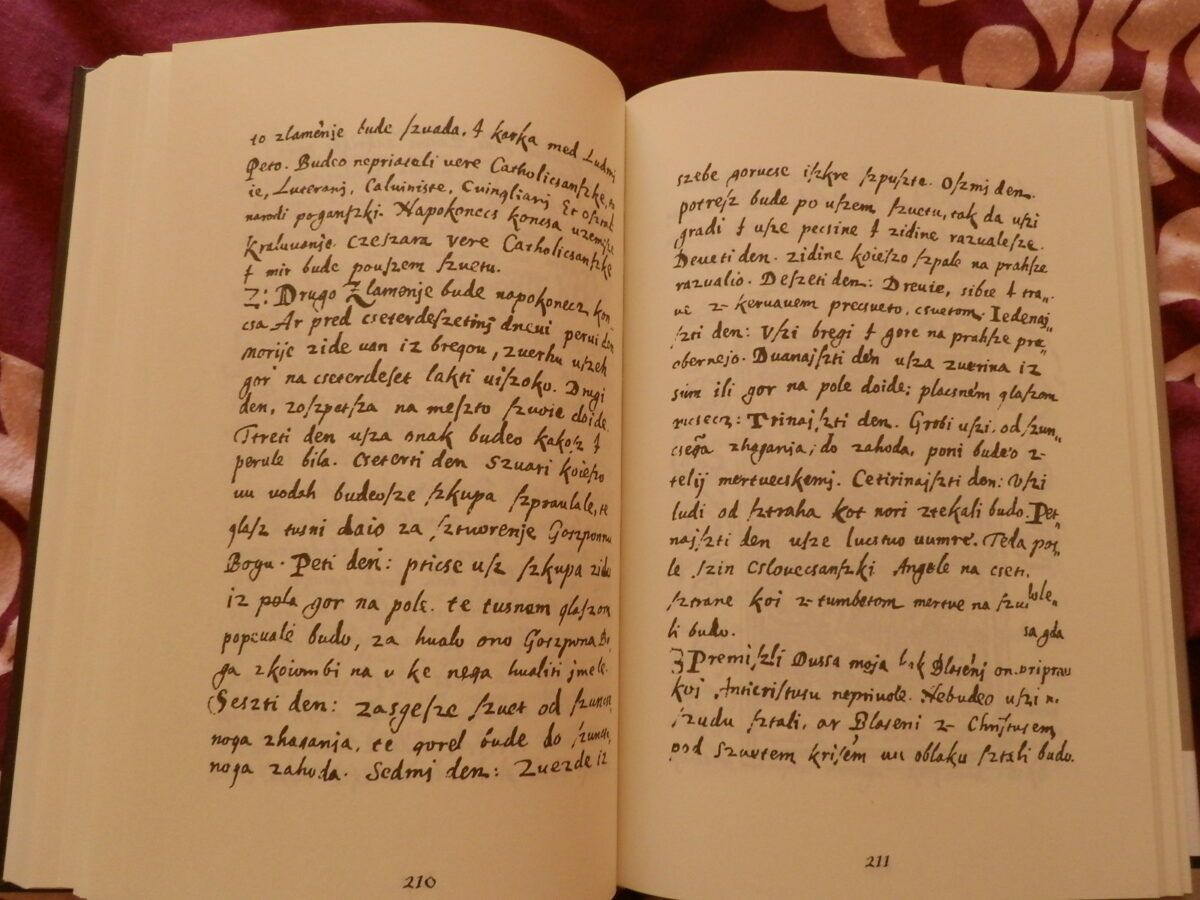 to zlamenje bude ſzvada, ɟ karka med Ludmj
Peto. Budeo nepriateli vere Catholicsanſzke, tu
ie, Luteranj, Calviniste, Cvingliarj Et oſzmi
narodi poganſzki. Napokonecs koncsa uzemſze
kraluvanje. Czeſzara vere Catholicsanſzke
ɟ mir bude pouſzem ſzvetu.
Z: Drugo Zlamenje bude napokonecz kon
csa Ar pred cseterdeſzetimj dnevi pervi den
morije zide van iz bregov, zverhu vſzeh
gor na cseterdeſet lakti viſzoko. Drugi
den, zoſzpetſza na meſzto ſzvoie doide.
Ttreti den vſza onak budeo kakoſz ɟ
perule bila. Cseterti den Szvari koieſzo
vu vodah budeoſze ſzkupa ſzpraulale, te
glaſz tusni daio za ſztvorenje Goszponnu
Bogu. Peti den: pticse vſz ſzkupa zido
iz pola gor na pole. te tusnem glaſzom
popevale budo, za hvalo ono Goszpona Bo
ga zkoiumbi na v ke nega hvaliti jmele.
Seszti den: zasgeſze ſzvet od ſzuncse
noga zhaganja, te gorel bude do ſzuncse
noga zahoda. Sedmj den: Zvezde iz
210
szebe gorucse iſzkre ſzpuſzte. Oſzmj den.
potreſz bude po vſzem ſzvetu, tak da vſzi
gradi ɟ vſze pecsine ɟ zidine razvaleſze.
Deveti den. zidine koieſzo ſzpale na prahſze
razvalio. Deſzeti den: Drevie, sibie ɟ tra„
ve z- kervavem precsveto, csvetom. Iedenaj„
ſzti den: Vſzi bregi ɟ gore na prahſze pre„
obernejo. Dvanajſzti den vſza zverina iz
sum ili gor na pole doide; placsném glaſzom
ricsecz: Trinajſzti den. Grobi vſzi, od ſzun„
csega zhaganja, do zahoda, poni budeo z-
telij mertvecskemj. Cetirinajſzti den: Vſzi
ludi od ſztraha kot nori ztekali budo. Pet„
najſzti den vſze lucstvo vumre. Teda poſ„
le ſzin Cslovecsanſzki Angele na cseti„
ſztrane koi z-tumbetom mertve na ſzu
li budo.
Z Premiſzli Dussa moja kak Blasenj on
koj Anticriſtusu neprivole. Nebudeo vſzi n.
ſzudu ſztali, ar Blaseni z- Chriſtusem
pod Szvetem krisém vu oblaku ſztali budo.
211